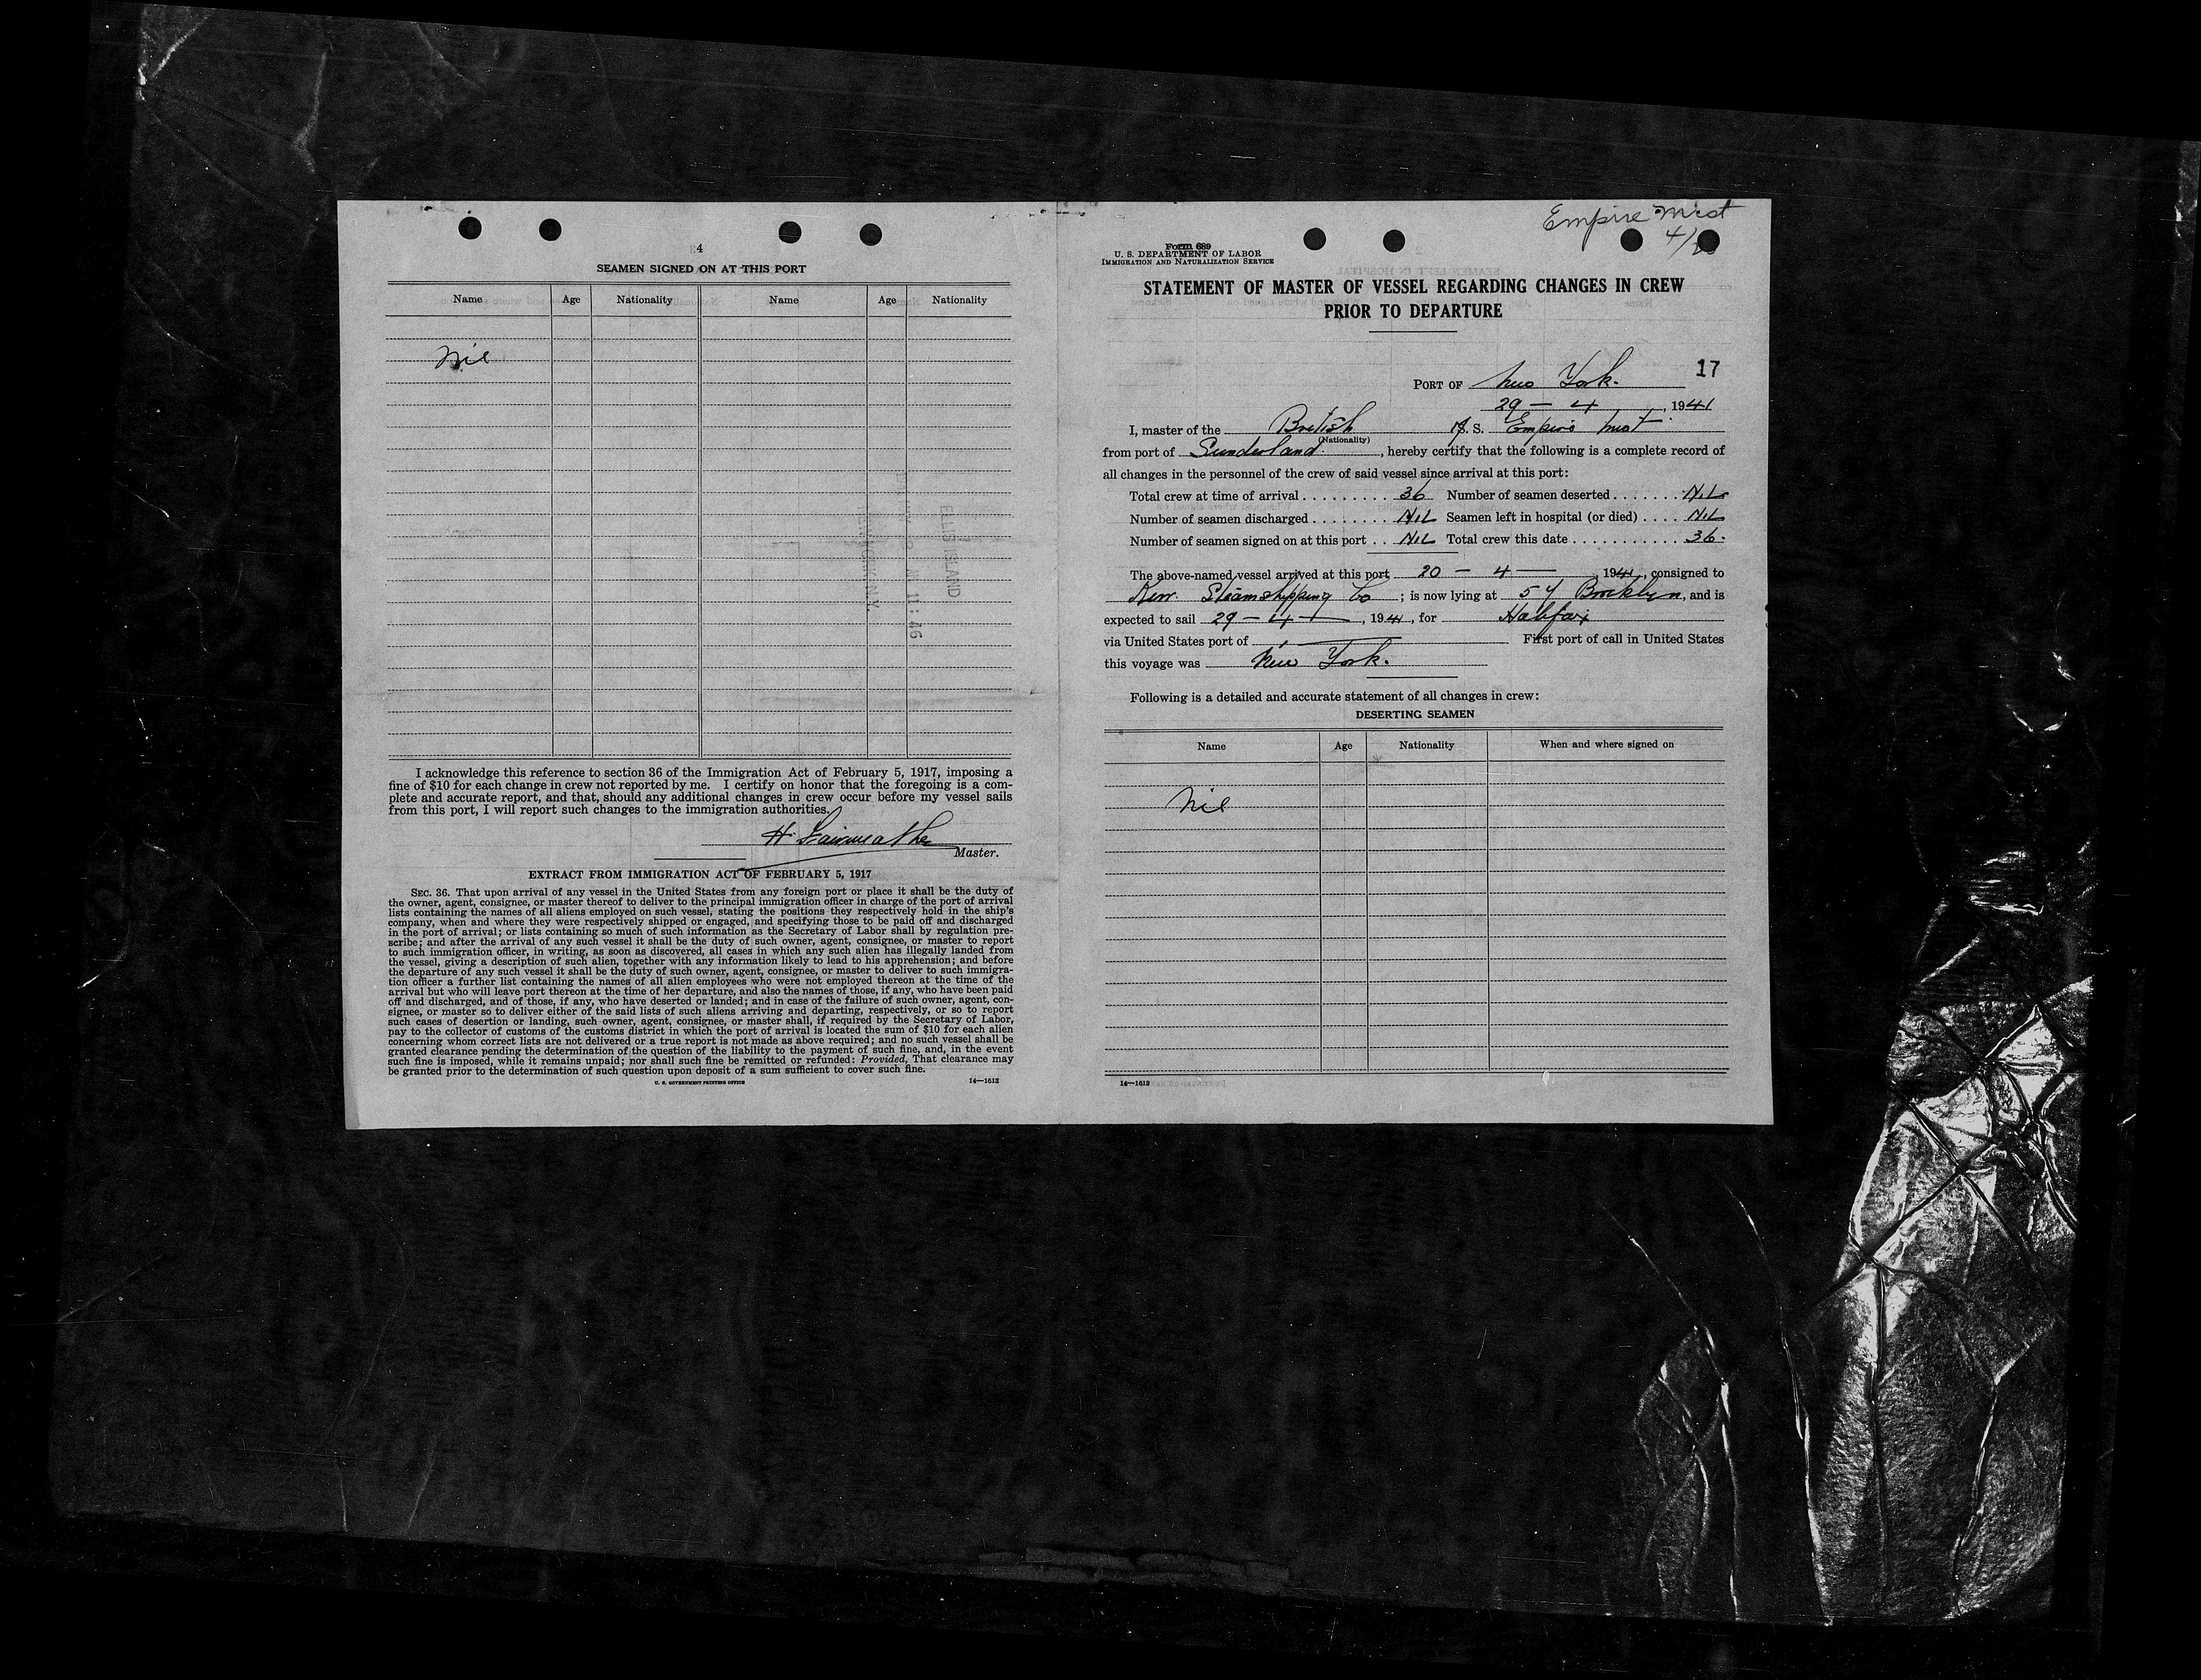 4
SEAMEN SIGNED ON AT THIS PORT
Name Age Nationality Name Age Nationality
Nil
ELLIS ISLAND
11:46
I acknowledge this reference to section 36 of the Immigration Act of February 5, 1917, imposing a
fine of $10 for each change in crew not reported by me. I certify on honor that the foregoing is a com-
plete and accurate report, and that, should any additional changes in crew occur before my vessel sails
from this port, I will report such changes to the immigration authorities.
H. Fairweather
Master.
EXTRACT FROM IMMIGRATION ACT OF FEBRUARY 5, 1917
SEC. 36. That upon arrival of any vessel in the United States from any foreign port or place it shall be the duty of
the owner, agent, consignee, or master thereof to deliver to the principal immigration officer in charge of the port of arrival
lists containing the names of all aliens employed on such vessel, stating the positions they respectively hold in the ship's
company, when and where they were respectively shipped or engaged, and specifying those to be paid off and discharged
in the port of arrival; or lists containing so much of such information as the Secretary of Labor shall by regulation pre-
scribe; and after the arrival of any such vessel it shall be the duty of such owner, agent, consignee, or master to report
to such immigration officer, in writing, as soon as discovered, all cases in which any such alien has illegally landed from
the vessel, giving a description of such alien, together with any information likely to lead to his apprehension; and before
the departure of any such vessel it shall be the duty of such owner, agent, consignee, or master to deliver to such immigra-
tion officer a further list containing the names of all alien employees who were not employed thereon at the time of the
arrival but who will leave port thereon at the time of her departure, and also the names of those, if any, who have been paid
off and discharged, and of those, if any, who have deserted or landed; and in case of the failure of such owner, agent, con-
signee, or master so to deliver either of the said lists of such aliens arriving and departing, respectively, or so to report
such cases of desertion or landing, such owner, agent, consignee, or master shall, if required by the Secretary of Labor,
pay to the collector of customs of the customs district in which the port of arrival is located the sum of $10 for each alien
concerning whom correct lists are not delivered or a true report is not made as above required; and no such vessel shall be
granted clearance pending the determination of the question of the liability to the payment of such fine, and, in the event
such fine is imposed, while it remains unpaid; nor shall such fine be remitted or refunded: Provided, That clearance may
be granted prior to the determination of such question upon deposit of a sum sufficient to cover such fine.
U. S. GOVERNMENT PRINTING OFFICE 14—1613
Empire Mist
Form 689
U. S. DEPARTMENT OF LABOR
IMMIGRATION AND NATURALIZATION SERVICE
STATEMENT OF MASTER OF VESSEL REGARDING CHANGES IN CREW
PRIOR TO DEPARTURE
17
PORT OF New York.
29 — 4, 1941
I, master of the British S. S. Empire Mist
(Nationality)
from port of Sunderland, hereby certify that the following is a complete record of
all changes in the personnel of the crew of said vessel since arrival at this port:
Total crew at time of arrival 36 Number of seamen deserted NIL
Number of seamen discharged NIL Seamen left in hospital (or died) NIL
Number of seamen signed on at this port NIL Total crew this date 36.
The above-named vessel arrived at this port 20 — 4 —, 1941, consigned to
Kerr Steamshipping Co; is now lying at 57 Brooklyn, and is
expected to sail 29 — 4 —, 1941, for Halifax
via United States port of — First port of call in United States
this voyage was New York.
Following is a detailed and accurate statement of all changes in crew:
DESERTING SEAMEN
Name Age Nationality When and where signed on
Nil
14—1613